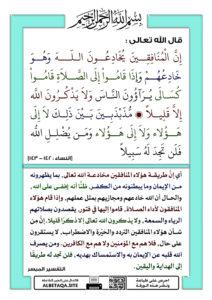 بِسْمِ اللَّهِ الرَّحْمَنِ الرَّحِيمِ
قال الله تعالى :
إِنَّ الْمُنَافِقِينَ يُخَادِعُونَ اللَّهَ وَهُوَ
خَادِعُهُمْ وَإِذَا قَامُوا إِلَى الصَّلَاةِ قَامُوا
كُسَالَى يُرَاءُونَ النَّاسَ وَلَا يَذْكُرُونَ اللَّهَ
إِلَّا قَلِيلًا مُذَبْذَبِينَ بَيْنَ ذَلِكَ لَا إِلَى
هَؤُلَاءِ وَلَا إِلَى هَؤُلَاءِ وَمَنْ يُضْلِلِ اللَّهُ
فَلَنْ تَجِدَ لَهُ سَبِيلًا
[النساء : ١٤٢ - ١٤٣]
إن طريقة هؤلاء المنافقين مخادعة الله تعالى، بما يظهرونه
من الإيمان وما يبطنونه من الكفر، ظنًا أنه يخفى على الله،
والحال أن الله خادعهم ومجازيهم بمثل عملهم، وإذا قام هؤلاء
المنافقون لأداء الصلاة، قاموا إليها في فتور، يقصدون بصلاتهم
الرياء والسمعة، ولا يذكرون الله تعالى إلا ذكرًا قليلا. إن من
شأن هؤلاء المنافقين التردد والحيرة والاضطراب، لا يستقرون
على حال، فلا هم مع المؤمنين ولا هم مع الكافرين. ومن يصرف
الله قلبه عن الإيمان به والاستمساك بهديه، فلن تجد له طريقا
إلى الهداية واليقين.
التفسير الميسر
ALBETAQA.SITE